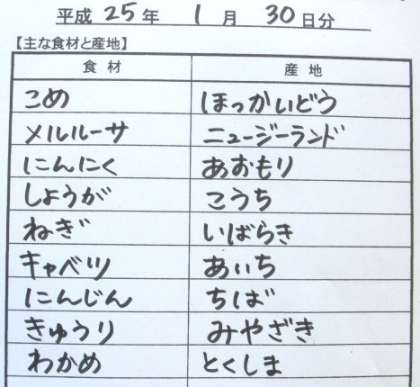 平成 25 年 1 月 30 日分
【主な食材と産地】
食材 産地
こめ ほっかいどう
メルルーサ ニュージーランド
にんにく あおもり
しょうが こうち
ねぎ いばらき
キャベツ あいち
にんじん ちば
きゅうり みやざき
わかめ とくしま